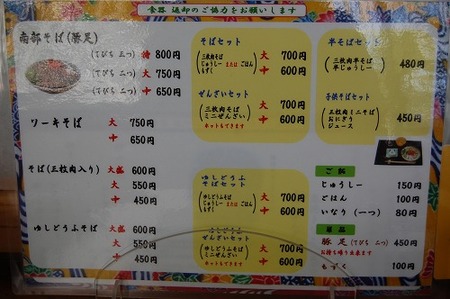 食器 返却のご協力をお願いします
南部そば(豚足)
(てびち 三つ) 特 800円
(てびち 二つ) 大 750円
(てびち 二つ) 中 650円
ソーキそば 大 750円
中 650円
そば(三枚肉入り) 大盛 600円
大 550円
中 450円
ゆしどうふそば 大盛 600円
大 550円
中 450円
そばセット
三枚肉そば
じゅうしー または ごはん
もずく
大 700円
中 600円
ぜんざいセット
三枚肉そば
ミニぜんざい
ホットもできます
大 700円
中 600円
ゆしどうふ
そばセット
ゆしどうふそば
じゅうしー または ごはん
もずく
大 700円
中 600円
ゆしどうふ
ぜんざいセット
ゆしどうふそば
ミニぜんざい
ホットもできます
大 700円
中 600円
半そばセット
三枚肉半そば
半じゅうしー
480円
子供そばセット
三枚肉ミニそば
おにぎり
ジュース
450円
ご飯
じゅうしー 150円
ごはん 100円
いなり (一つ) 80円
単品
豚足(てびち 二つ) 450円
お持ち帰り出来ます
もずく 100円